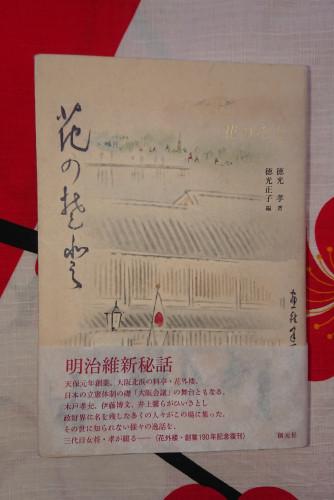 花の
徳光 孝 著
徳光正子 編
明治維新秘話
天保元年創業、大阪北浜の料亭・花外楼。
日本の立憲体制の礎「大阪会議」の舞台ともなる。
木戸孝允、伊藤博文、井上馨らがひいきとし
政財界に名を残した多くの人々がこの場に集った。
その世に知られない様々の逸話を、
三代目女将・孝が綴る――（花外楼・創業190年記念復刊）
創元社